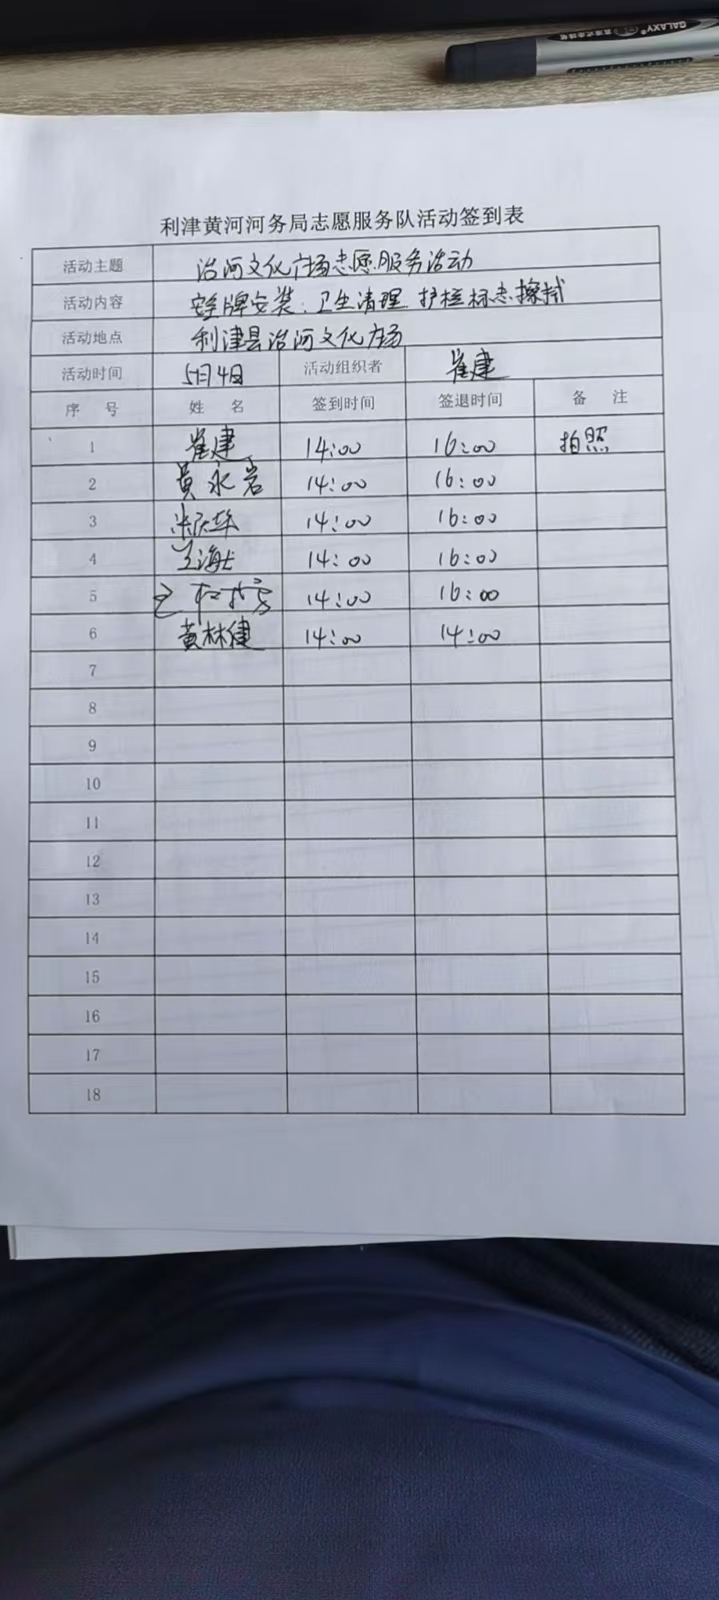 GALAXY
利津黄河河务局志愿服务队活动签到表
活动主题 治河文化广场志愿服务活动
活动内容 牌安装、卫生清理 护栏标志擦拭
活动地点 利津县治河文化广场
活动时间 5月4日 活动组织者 崔建
序 号 姓 名 签到时间 签退时间 备 注
1 崔建 14:00 16:00 拍照
2 黄永岩 14:00 16:00
3 14:00 16:00
4 14:00 16:00
5 14:00 16:00
6 黄林健 14:00 14:00
7
8
9
10
11
12
13
14
15
16
17
18